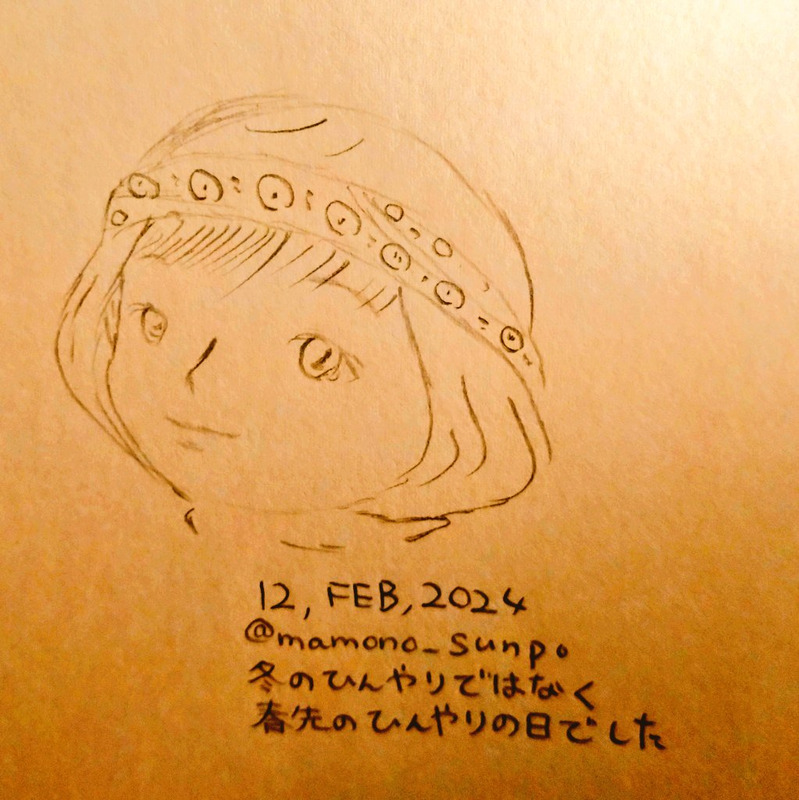 12, FEB, 2024
@mamono_sunpo
冬のひんやりではなく
春先のひんやりの日でした